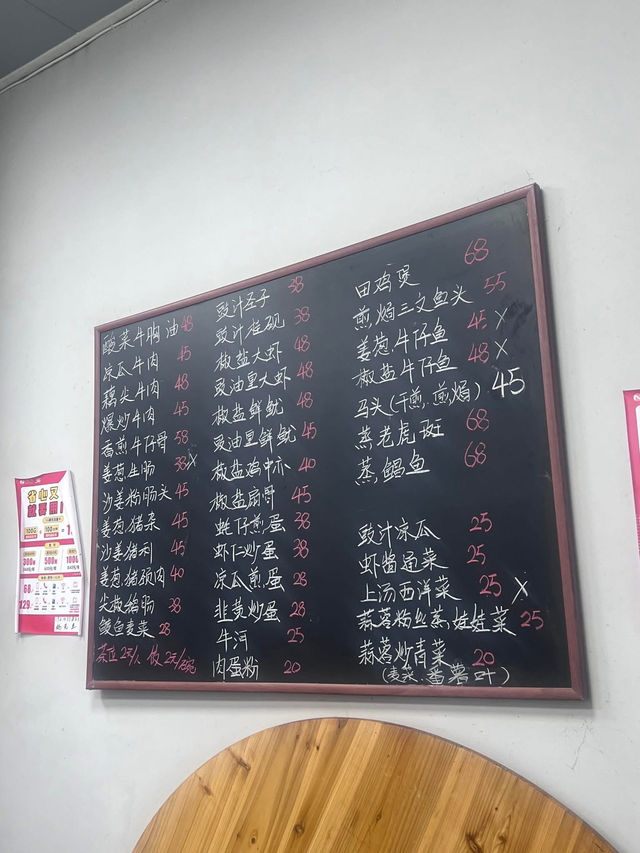 酸菜牛胸油 48
凉瓜牛肉 45
藕尖牛肉 48
爆炒牛肉 45
香煎牛仔骨 58
姜葱生肠 38 X
沙姜粉肠头 45
姜葱猪杂 45
沙姜猪利 45
姜葱猪颈肉 40
尖椒猪肠 38
鲮鱼麦菜 28
茶位2元/人 饭2元/碗
豉汁圣子 38
豉汁桂砚 38
椒盐大虾 48
豉油皇大虾 48
椒盐鲜鱿 48
豉油皇鲜鱿 45
椒盐鸡中 40
椒盐扇骨 45
蚝仔煎蛋 38
虾仁炒蛋 38
凉瓜煎蛋 28
韭黄炒蛋 28
牛河 25
肉蛋粉 20
田鸡煲 68
煎焗三文鱼头 55
姜葱牛仔鱼 45 X
椒盐牛仔鱼 48 X
马头(干煎,煎焗) 45
蒸老虎斑 68
蒸鲳鱼 68
豉汁凉瓜 25
虾酱通菜 25
上汤西洋菜 25 X
蒜蓉粉丝蒸娃娃菜 25
蒜蓉炒青菜 20
(麦菜、番薯叶)
省心又
300
500
100
129